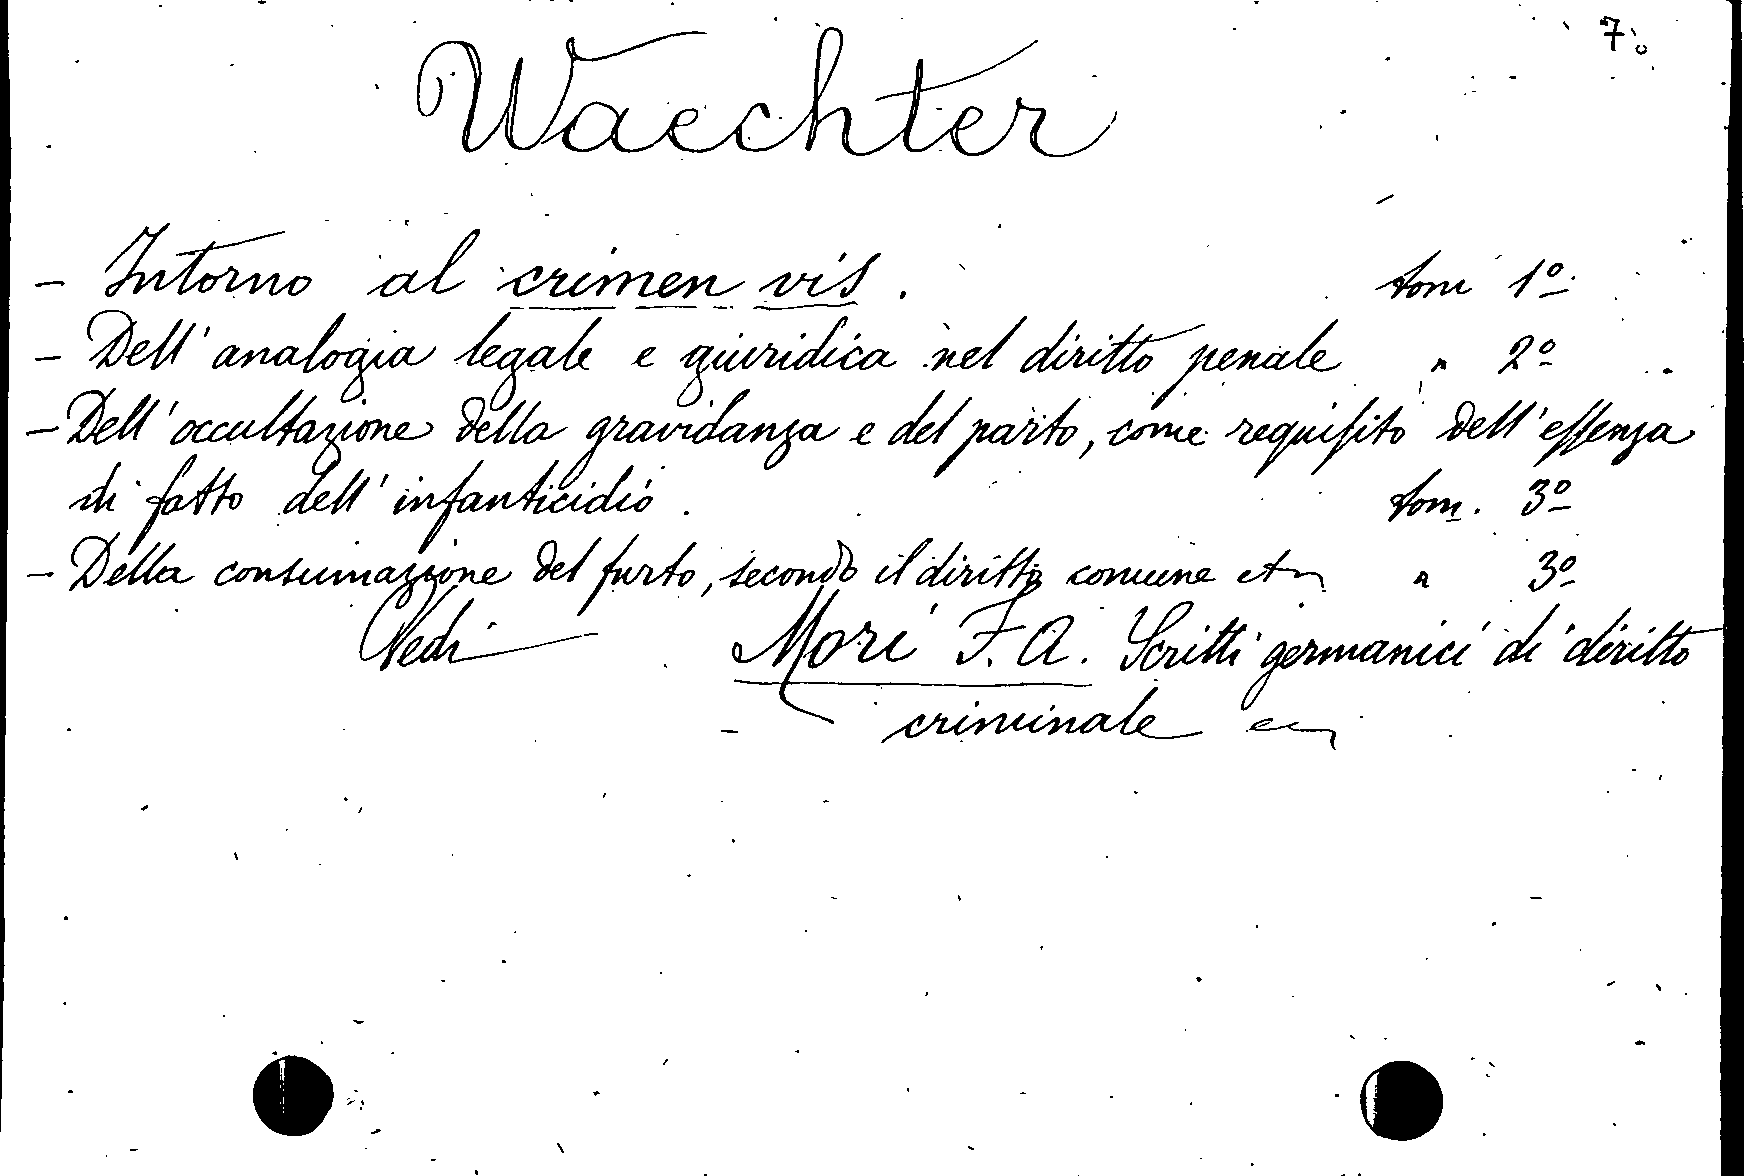 7.
Waechter
- Intorno al crimen vis. tom 1º
- Dell'analogia legale e giuridica nel diritto penale " 2º
- Dell'occultazione della gravidanza e del parto, come requisito dell'essenza
di fatto dell'infanticidio. tom. 3º
- Della consumazione del furto, secondo il diritto comune " 3º
Vedi Mori F. A. Scritti germanici di diritto
criminale